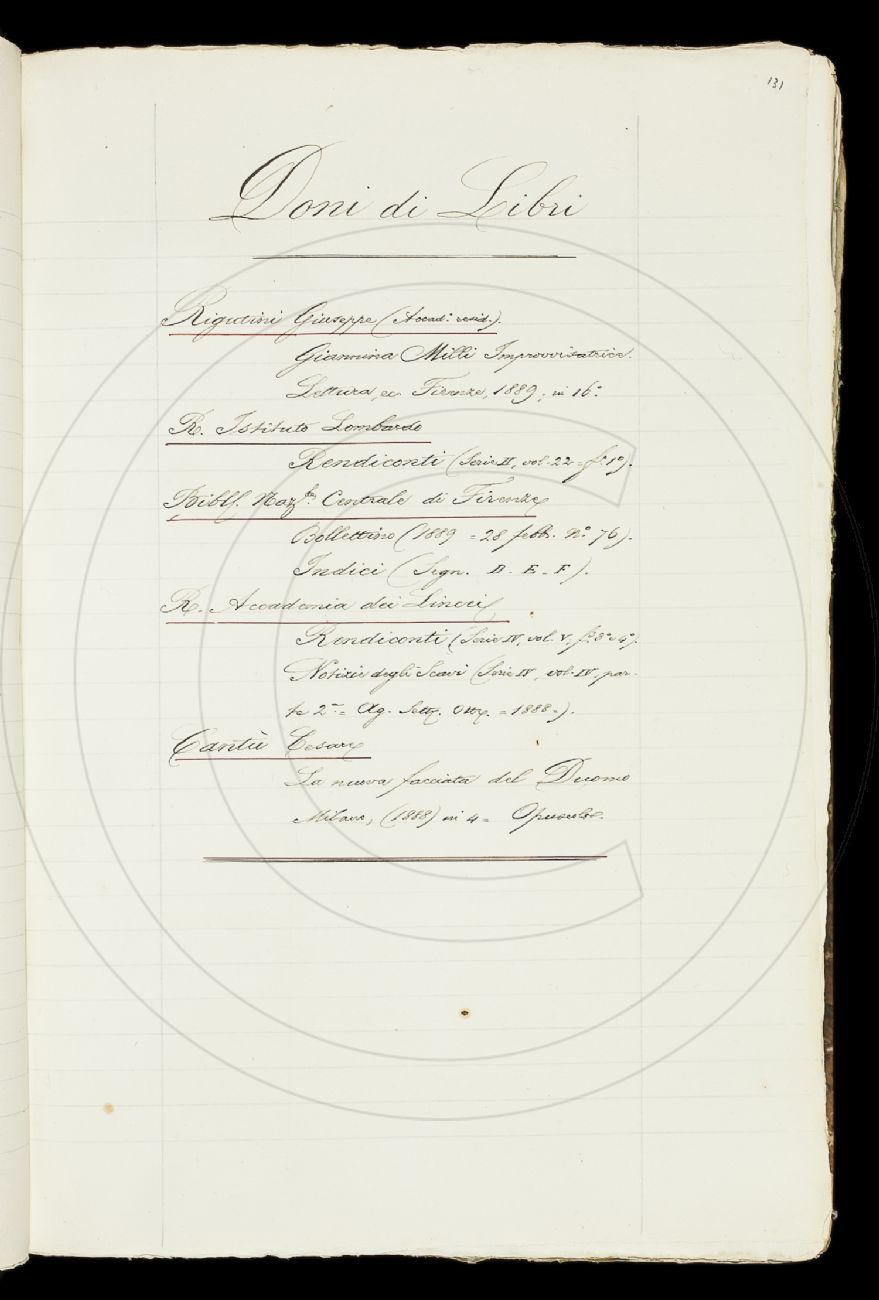 131
Doni di Libri
Rigutini Giuseppe (Accad.º resid.).
Giannina Milli Improvvisatrice.
Lettura, ec. Firenze, 1889, in 16.º
R. Istituto Lombardo
Rendiconti (Serie II, vol. 22 = f.º 1º).
Bibl. Naz. Centrale di Firenze
Bollettino (1889 = 28 febb. Nº 76).
Indici (Segn. D. E. F).
R. Accademia dei Lincei
Rendiconti (Serie IV, vol. V, f.º 3º e 4º).
Notizie degli Scavi (Serie IV, vol. IV, par-
te 2ª = Ag. Sett. Ott. = 1888.).
Cantù Cesare
La nuova facciata del Duomo
Milano, (1888) in 4 = Opuscolo.